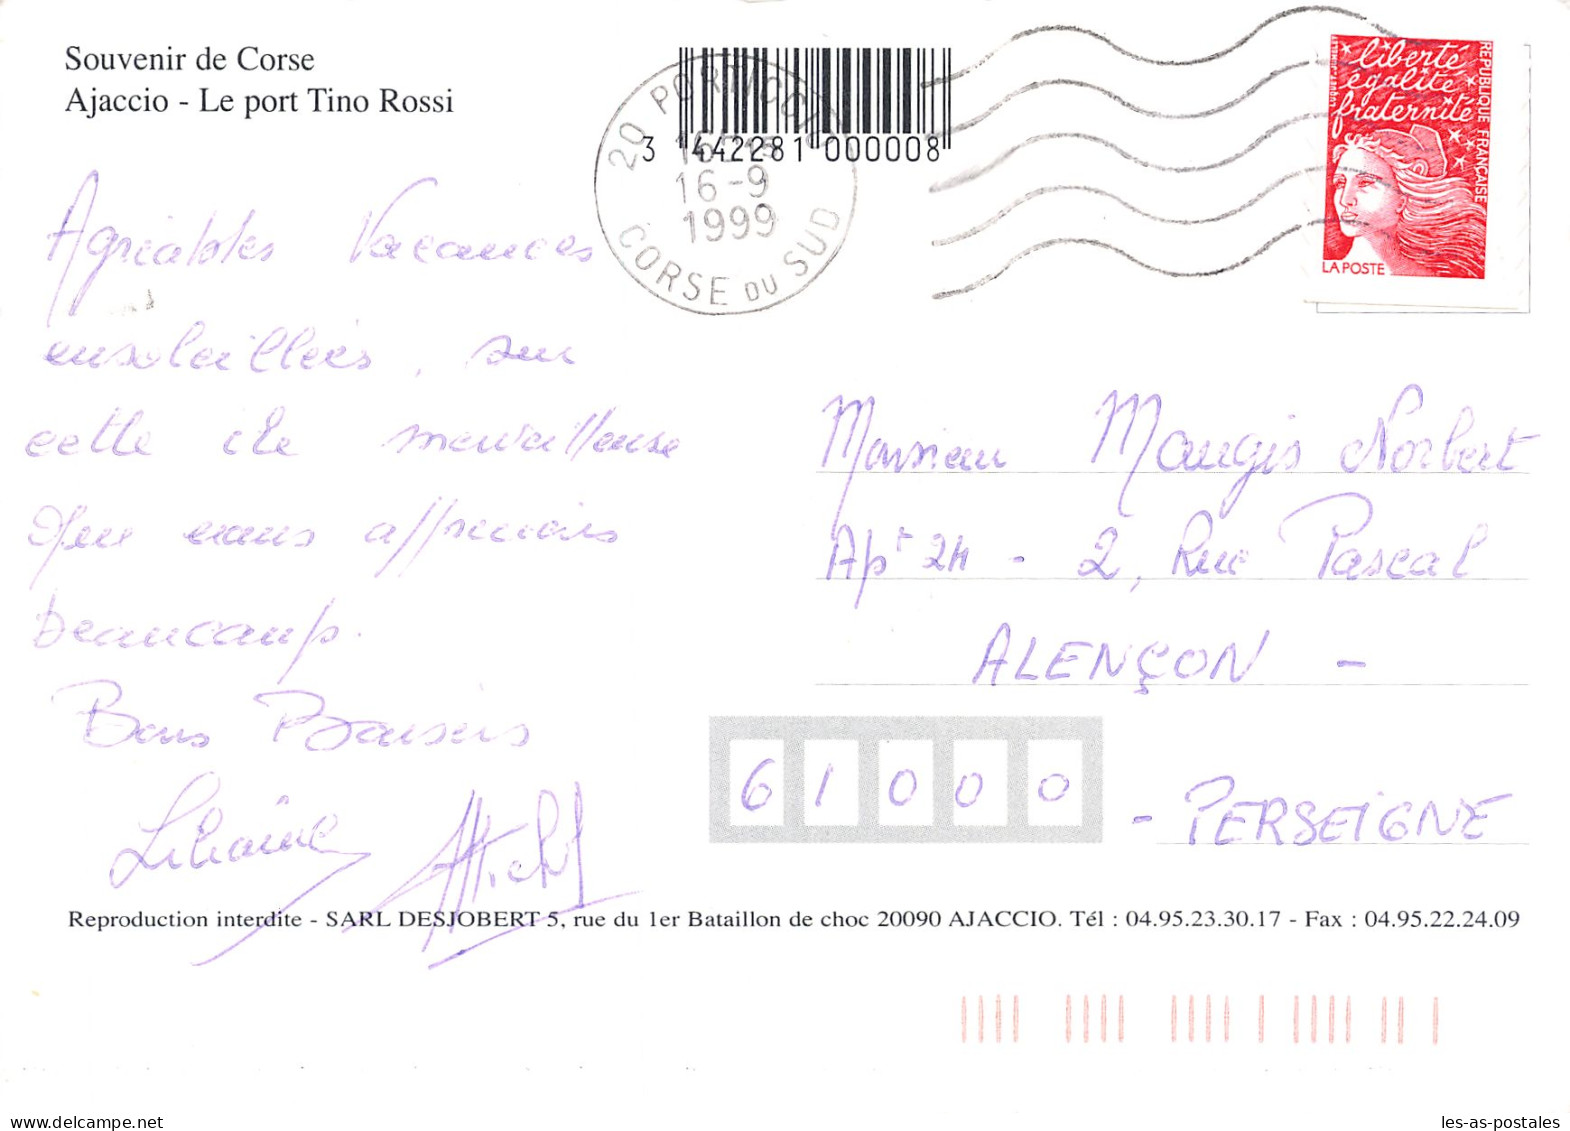 Souvenir de Corse
Ajaccio - Le port Tino Rossi
3 442281 000008
20 PORTICCIO
16-9
1999
CORSE DU SUD
liberté
égalité
fraternité
REPUBLIQUE FRANÇAISE
LA POSTE
Agréables Vacances
ensoleillées, sur
cette île merveilleuse
Que nous apprécions
beaucoup.
Bons Baisers
Liliane Michel
Monsieur Maugis Norbert
Apt 24 - 2, Rue Pascal
ALENÇON -
61000
- PERSEIGNE
Reproduction interdite - SARL DESJOBERT 5, rue du 1er Bataillon de choc 20090 AJACCIO. Tél : 04.95.23.30.17 - Fax : 04.95.22.24.09
delcampe.net
les-as-postales